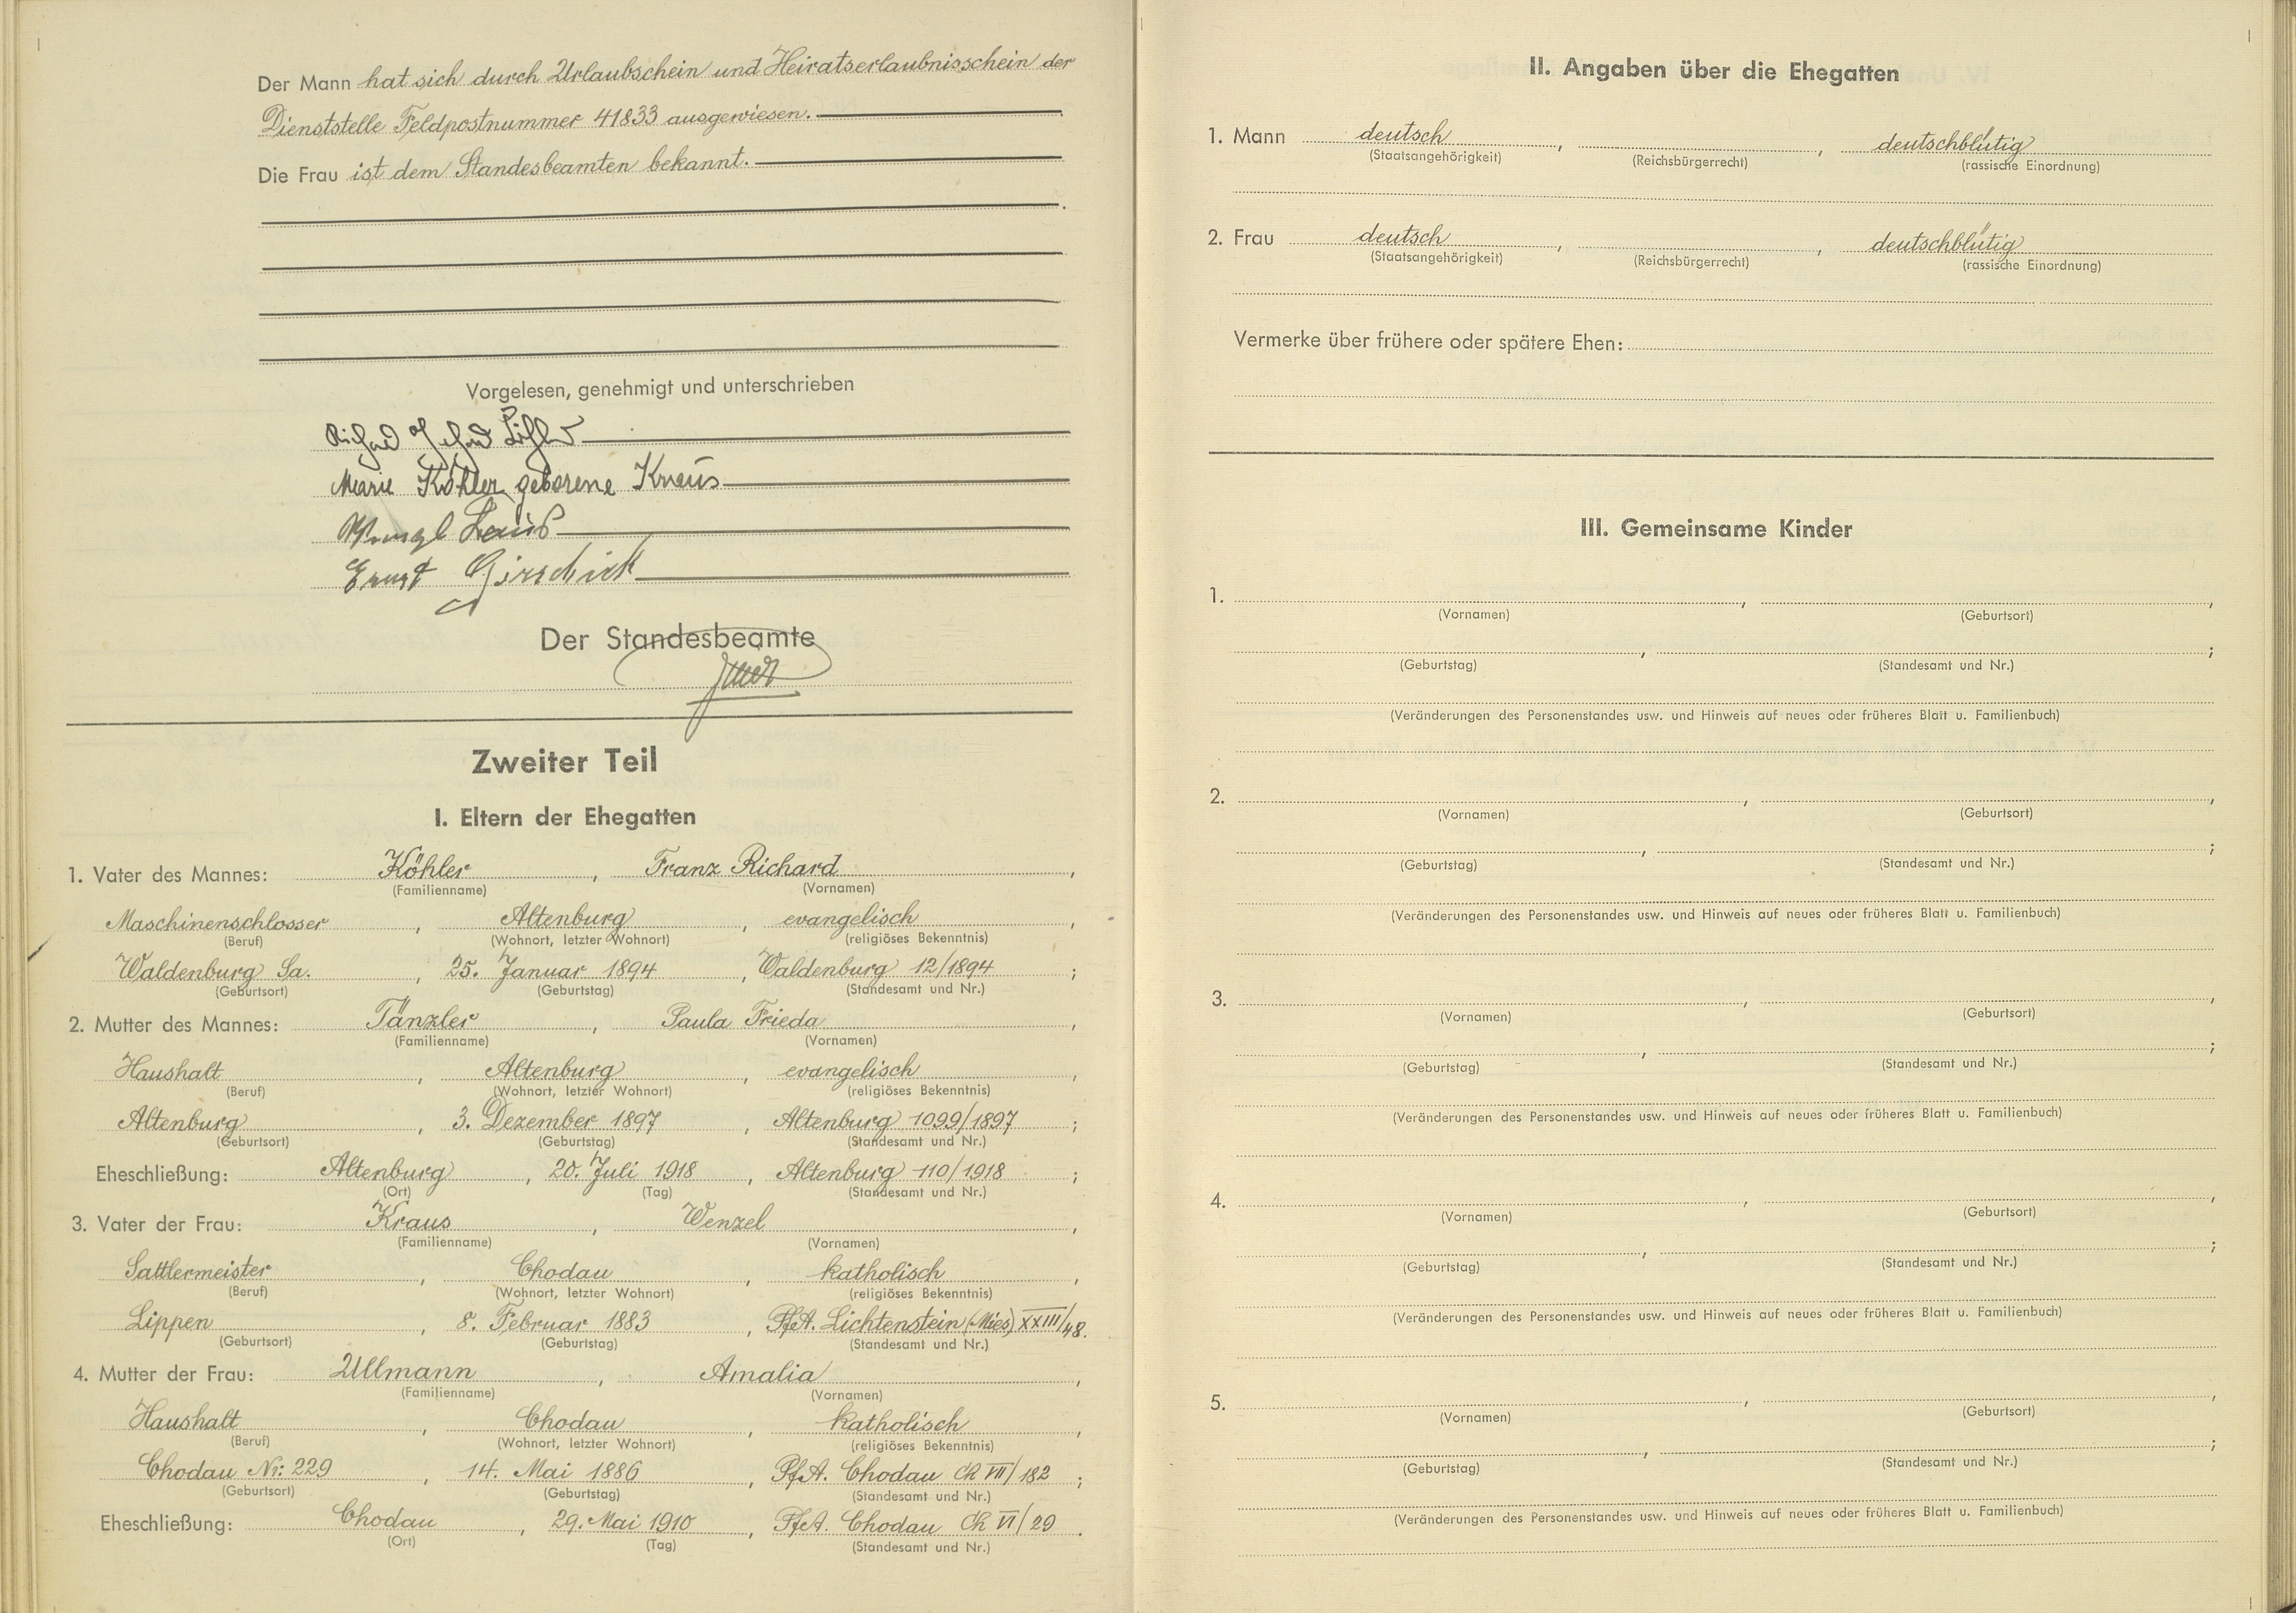 Der Mann hat sich durch Urlaubschein und Heiratserlaubnisschein der
Dienststelle Feldpostnummer 41833 ausgewiesen.
Die Frau ist dem Standesbeamten bekannt.
Vorgelesen, genehmigt und unterschrieben
Richard
Marie Köhler geborene Kraus
Ernst Girschick
Der Standesbeamte
Zweiter Teil
I. Eltern der Ehegatten
1. Vater des Mannes: Köhler, Franz Richard,
(Familienname) (Vornamen)
Maschinenschlosser, Altenburg, evangelisch,
(Beruf) (Wohnort, letzter Wohnort) (religiöses Bekenntnis)
Waldenburg Sa., 25. Januar 1894, Waldenburg 12/1894;
(Geburtsort) (Geburtstag) (Standesamt und Nr.)
2. Mutter des Mannes: Tänzler, Paula Frieda,
(Familienname) (Vornamen)
Haushalt, Altenburg, evangelisch,
(Beruf) (Wohnort, letzter Wohnort) (religiöses Bekenntnis)
Altenburg, 3. Dezember 1897, Altenburg 1099/1897;
(Geburtsort) (Geburtstag) (Standesamt und Nr.)
Eheschließung: Altenburg, 20. Juli 1918, Altenburg 110/1918;
(Ort) (Tag) (Standesamt und Nr.)
3. Vater der Frau: Kraus, Wenzel,
(Familienname) (Vornamen)
Sattlermeister, Chodau, katholisch,
(Beruf) (Wohnort, letzter Wohnort) (religiöses Bekenntnis)
Lippen, 8. Februar 1883, PfA. Lichtenstein (Mies) XXIII/48.
(Geburtsort) (Geburtstag) (Standesamt und Nr.)
4. Mutter der Frau: Ullmann, Amalia,
(Familienname) (Vornamen)
Haushalt, Chodau, katholisch,
(Beruf) (Wohnort, letzter Wohnort) (religiöses Bekenntnis)
Chodau Nr: 229, 14. Mai 1886, PfA. Chodau Ch VII/182;
(Geburtsort) (Geburtstag) (Standesamt und Nr.)
Eheschließung: Chodau, 29. Mai 1910, PfA. Chodau Ch VI/29.
(Ort) (Tag) (Standesamt und Nr.)
II. Angaben über die Ehegatten
1. Mann deutsch, , deutschblütig
(Staatsangehörigkeit) (Reichsbürgerrecht) (rassische Einordnung)
2. Frau deutsch, , deutschblütig
(Staatsangehörigkeit) (Reichsbürgerrecht) (rassische Einordnung)
Vermerke über frühere oder spätere Ehen:
III. Gemeinsame Kinder
1. , ,
(Vornamen) (Geburtsort)
, ;
(Geburtstag) (Standesamt und Nr.)
(Veränderungen des Personenstandes usw. und Hinweis auf neues oder früheres Blatt u. Familienbuch)
2. , ,
(Vornamen) (Geburtsort)
, ;
(Geburtstag) (Standesamt und Nr.)
(Veränderungen des Personenstandes usw. und Hinweis auf neues oder früheres Blatt u. Familienbuch)
3. , ,
(Vornamen) (Geburtsort)
, ;
(Geburtstag) (Standesamt und Nr.)
(Veränderungen des Personenstandes usw. und Hinweis auf neues oder früheres Blatt u. Familienbuch)
4. , ,
(Vornamen) (Geburtsort)
, ;
(Geburtstag) (Standesamt und Nr.)
(Veränderungen des Personenstandes usw. und Hinweis auf neues oder früheres Blatt u. Familienbuch)
5. , ,
(Vornamen) (Geburtsort)
, ;
(Geburtstag) (Standesamt und Nr.)
(Veränderungen des Personenstandes usw. und Hinweis auf neues oder früheres Blatt u. Familienbuch)